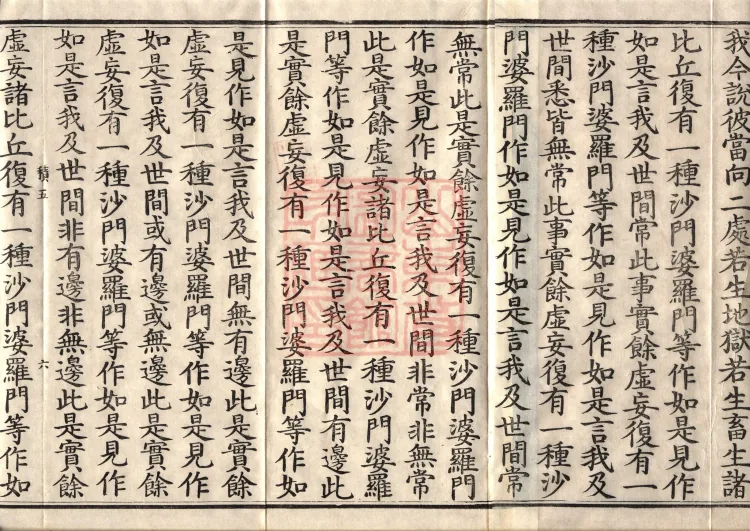 我今說彼當向二處若生地獄若生畜生諸
比丘復有一種沙門婆羅門等作如是見作
如是言我及世間常此事實餘虛妄復有一
種沙門婆羅門等作如是見作如是言我及
世間悉皆無常此事實餘虛妄復有一種沙
門婆羅門作如是見作如是言我及世間常
無常此是實餘虛妄復有一種沙門婆羅門
作如是見作如是言我及世間非常非無常
此是實餘虛妄諸比丘復有一種沙門婆羅
門等作如是見作如是言我及世間有邊此
是實餘虛妄復有一種沙門婆羅門等作如
是見作如是言我及世間無有邊此是實餘
虛妄復有一種沙門婆羅門等作如是見作
如是言我及世間或有邊或無邊此是實餘
虛妄復有一種沙門婆羅門等作如是見作
如是言我及世間非有邊非無邊此是實餘
積五 六
虛妄諸比丘復有一種沙門婆羅門等作如